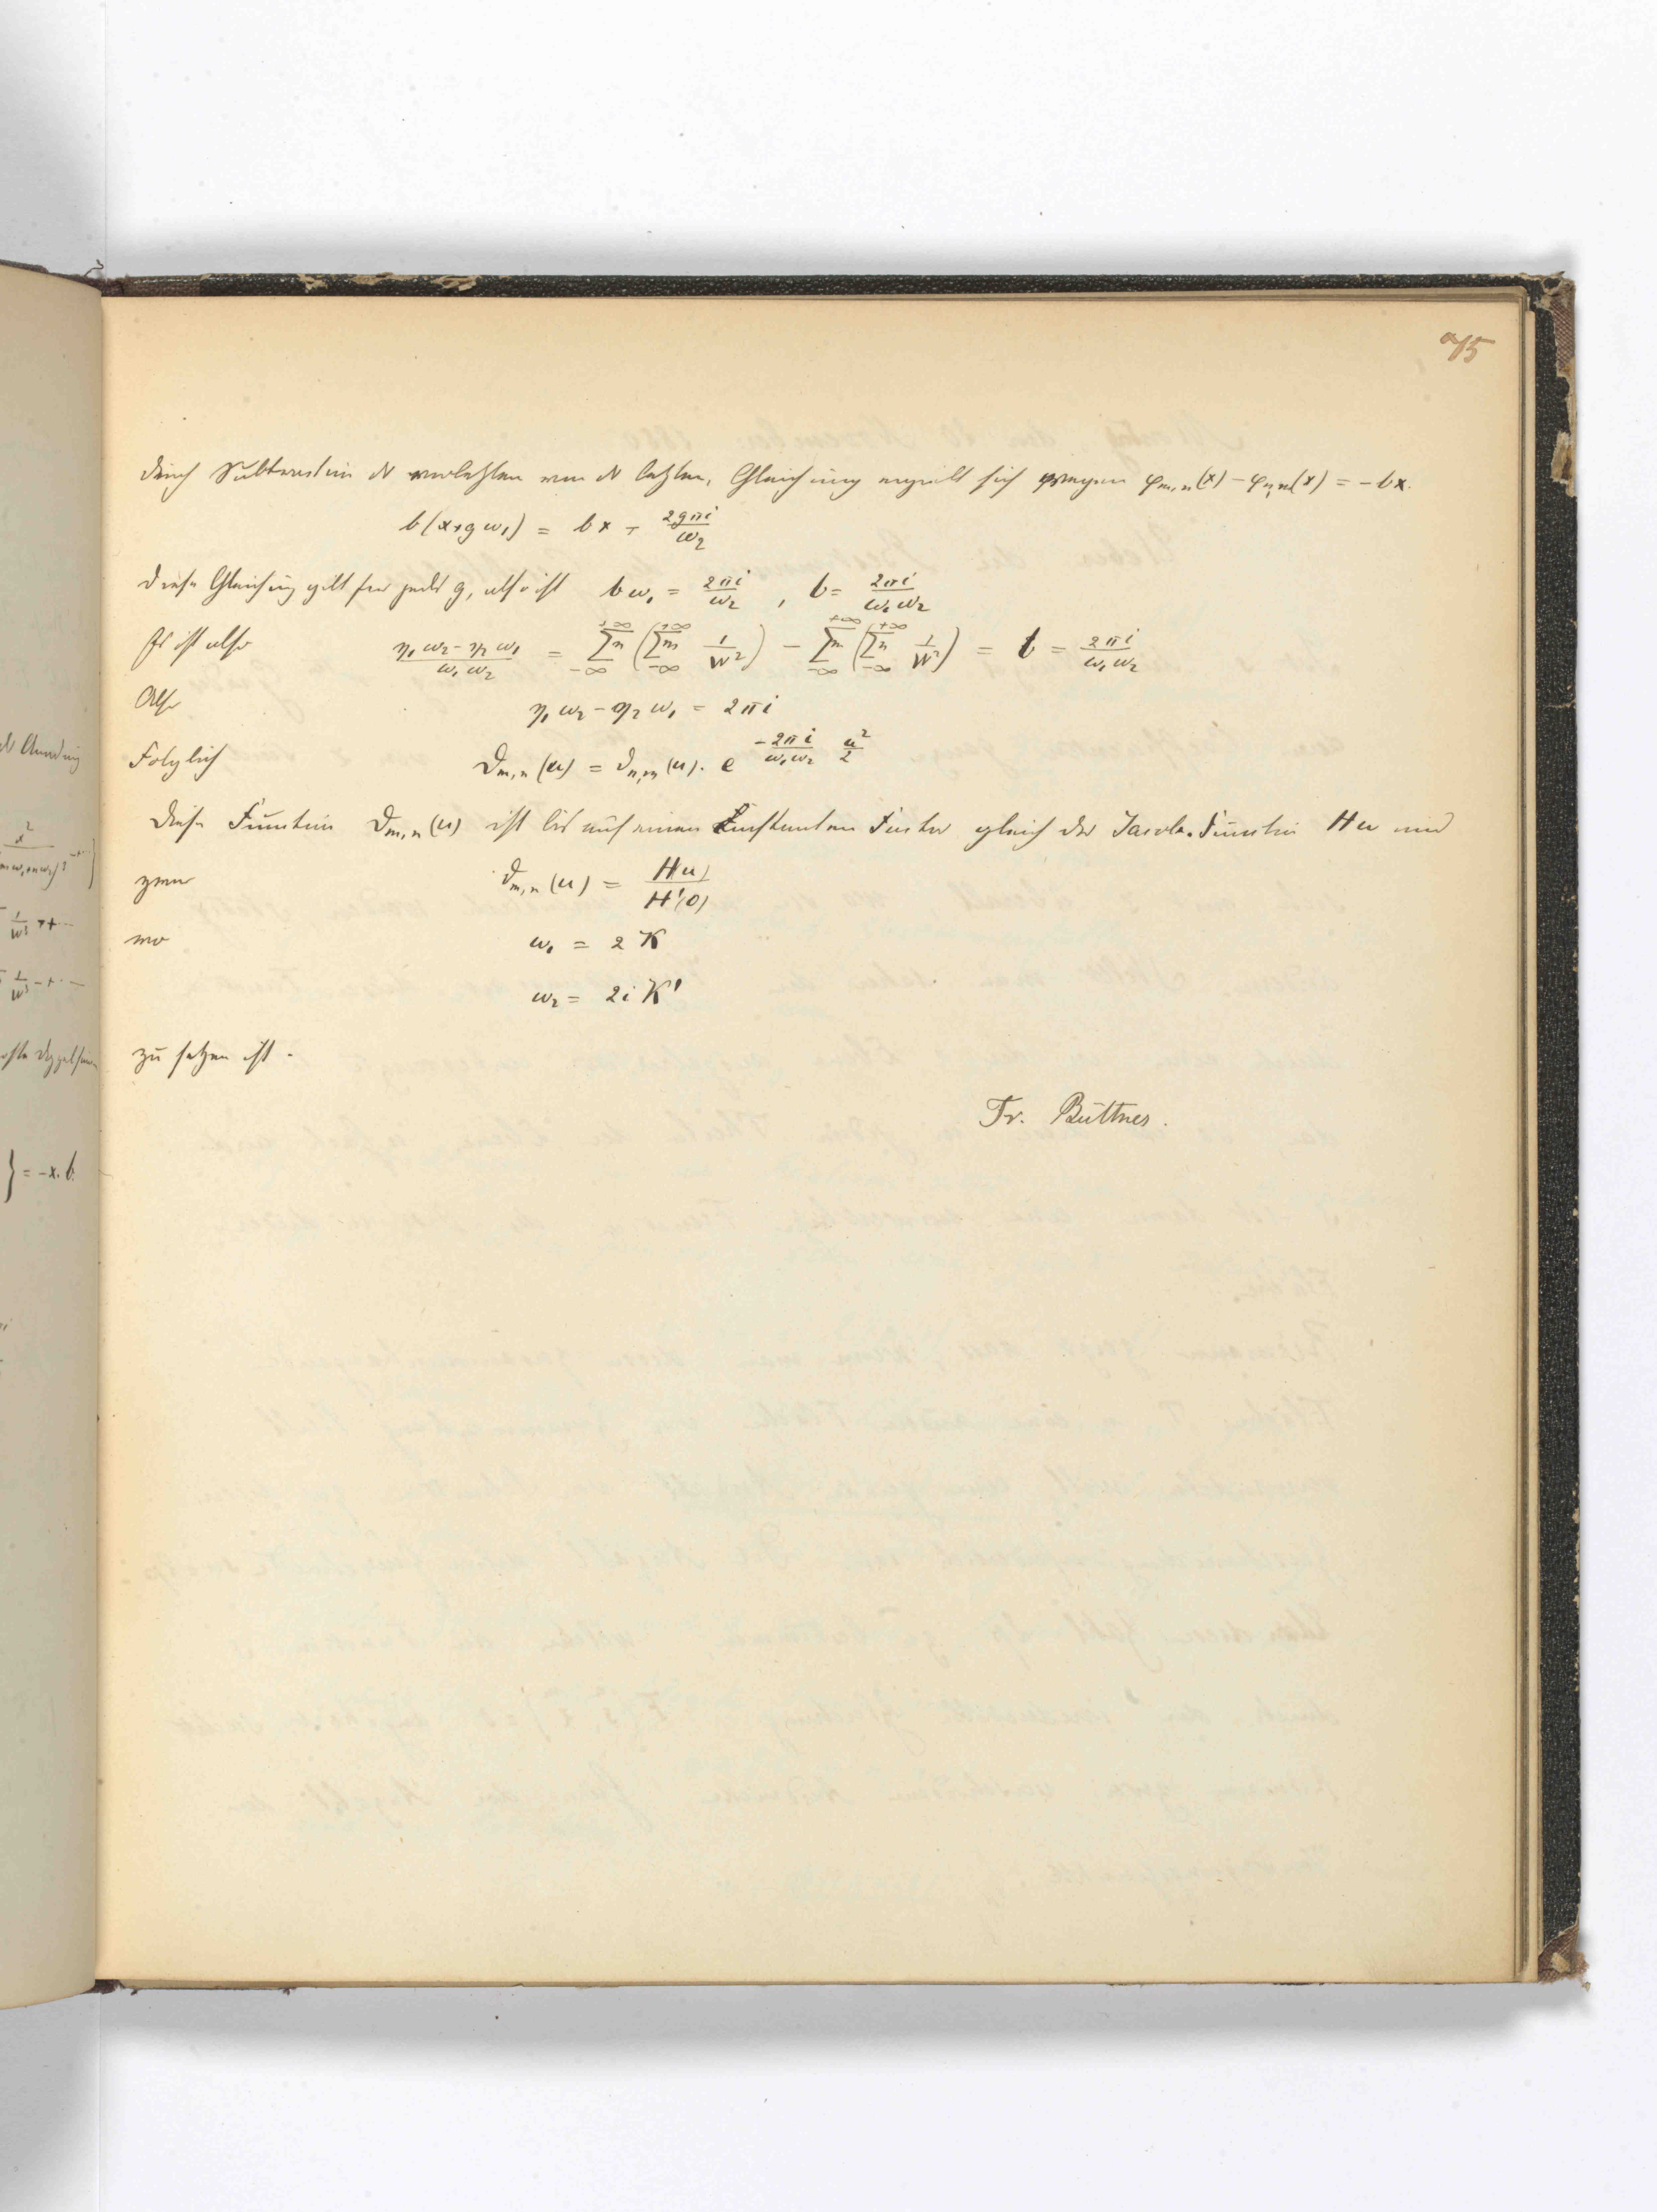 75
Durch Subtraction der vorletzten von der letzten Gleichung ergiebt sich wegen φ_{m,n}(x) − φ_{n,m}(x) = −bx.
b(x+gω₁) = bx + 2gπi/ω₂
Diese Gleichung gilt für jedes g, also ist bω₁ = 2πi/ω₂ , b = 2πi/ω₁ω₂
Es ist also (η₁ω₂ − η₂ω₁)/ω₁ω₂ = Σn_{−∞}^{+∞} (Σm_{−∞}^{+∞} 1/W²) − Σm_{−∞}^{+∞} (Σn_{−∞}^{+∞} 1/W²) = b = 2πi/ω₁ω₂
Also η₁ω₂ − η₂ω₁ = 2πi
Folglich ϑ_{m,n}(u) = ϑ_{n,m}(u). e^{−2πi/ω₁ω₂ u²/2}
Diese Function ϑ_{m,n}(u) ist bis auf einen constanten Factor gleich der Jacob. Function Hu und
zwar ϑ_{m,n}(u) = H(u)/H'(0)
wo ω₁ = 2K
ω₂ = 2iK'
zu setzen ist.
Fr. Büttner.